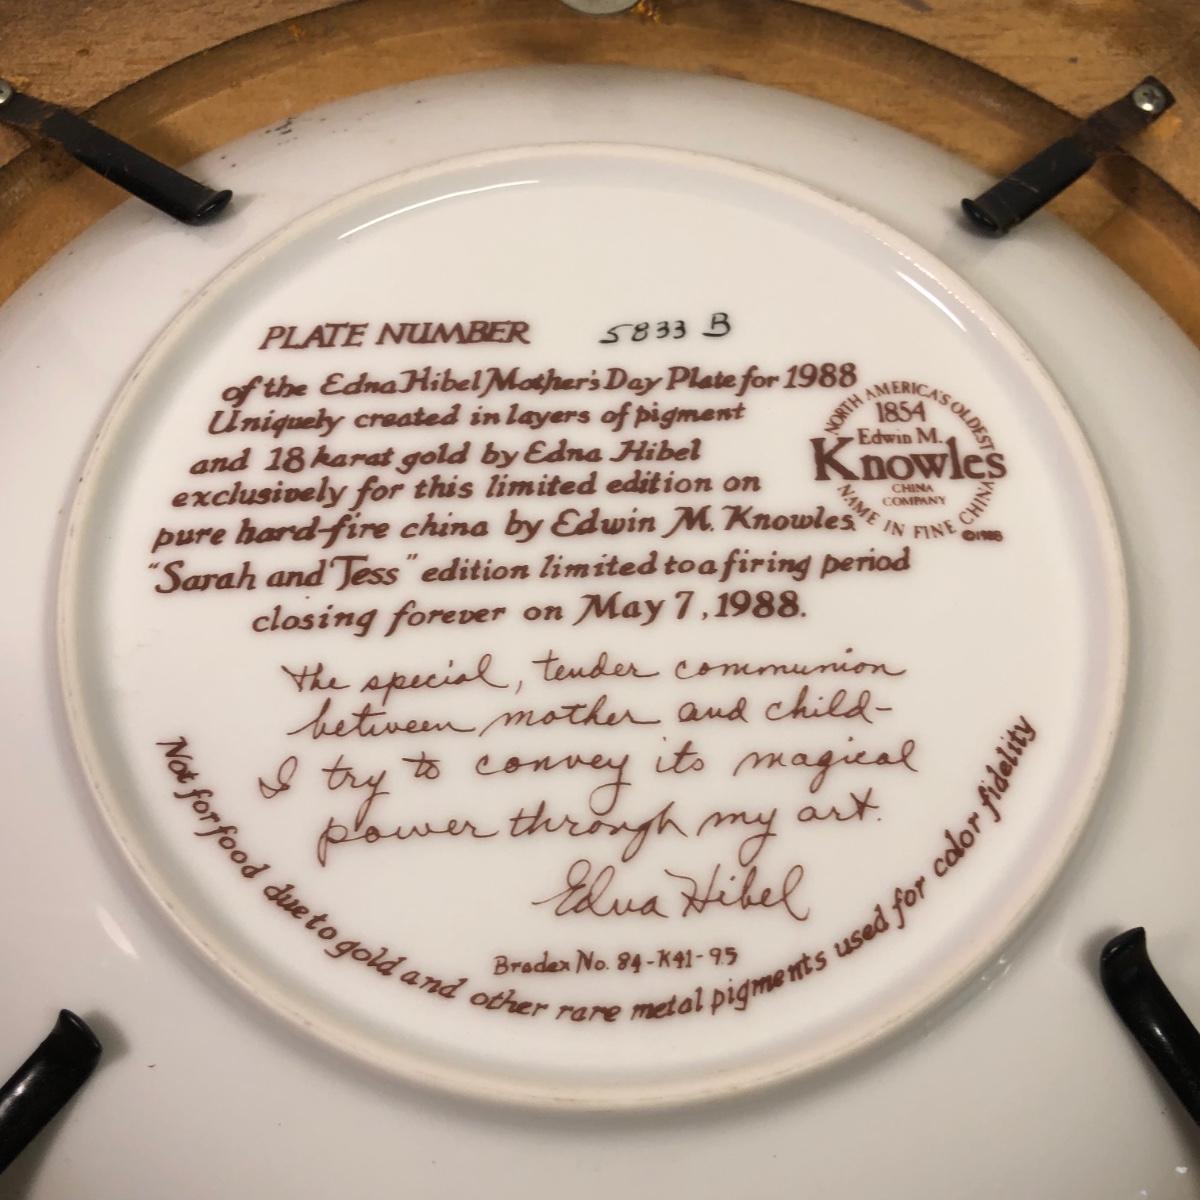 PLATE NUMBER 5833 B
of the Edna Hibel Mother's Day Plate for 1988
Uniquely created in layers of pigment
and 18 karat gold by Edna Hibel
exclusively for this limited edition on
pure hard-fire china by Edwin M. Knowles.
"Sarah and Tess" edition limited to a firing period
closing forever on May 7, 1988.
NORTH AMERICA'S OLDEST
1854
Edwin M.
Knowles
CHINA
COMPANY
NAME IN FINE CHINA
©1988
the special, tender communion
between mother and child-
I try to convey its magical
power through my art.
Edna Hibel
Bradex No. 84-K41-95
Not for food due to gold and other rare metal pigments used for color fidelity